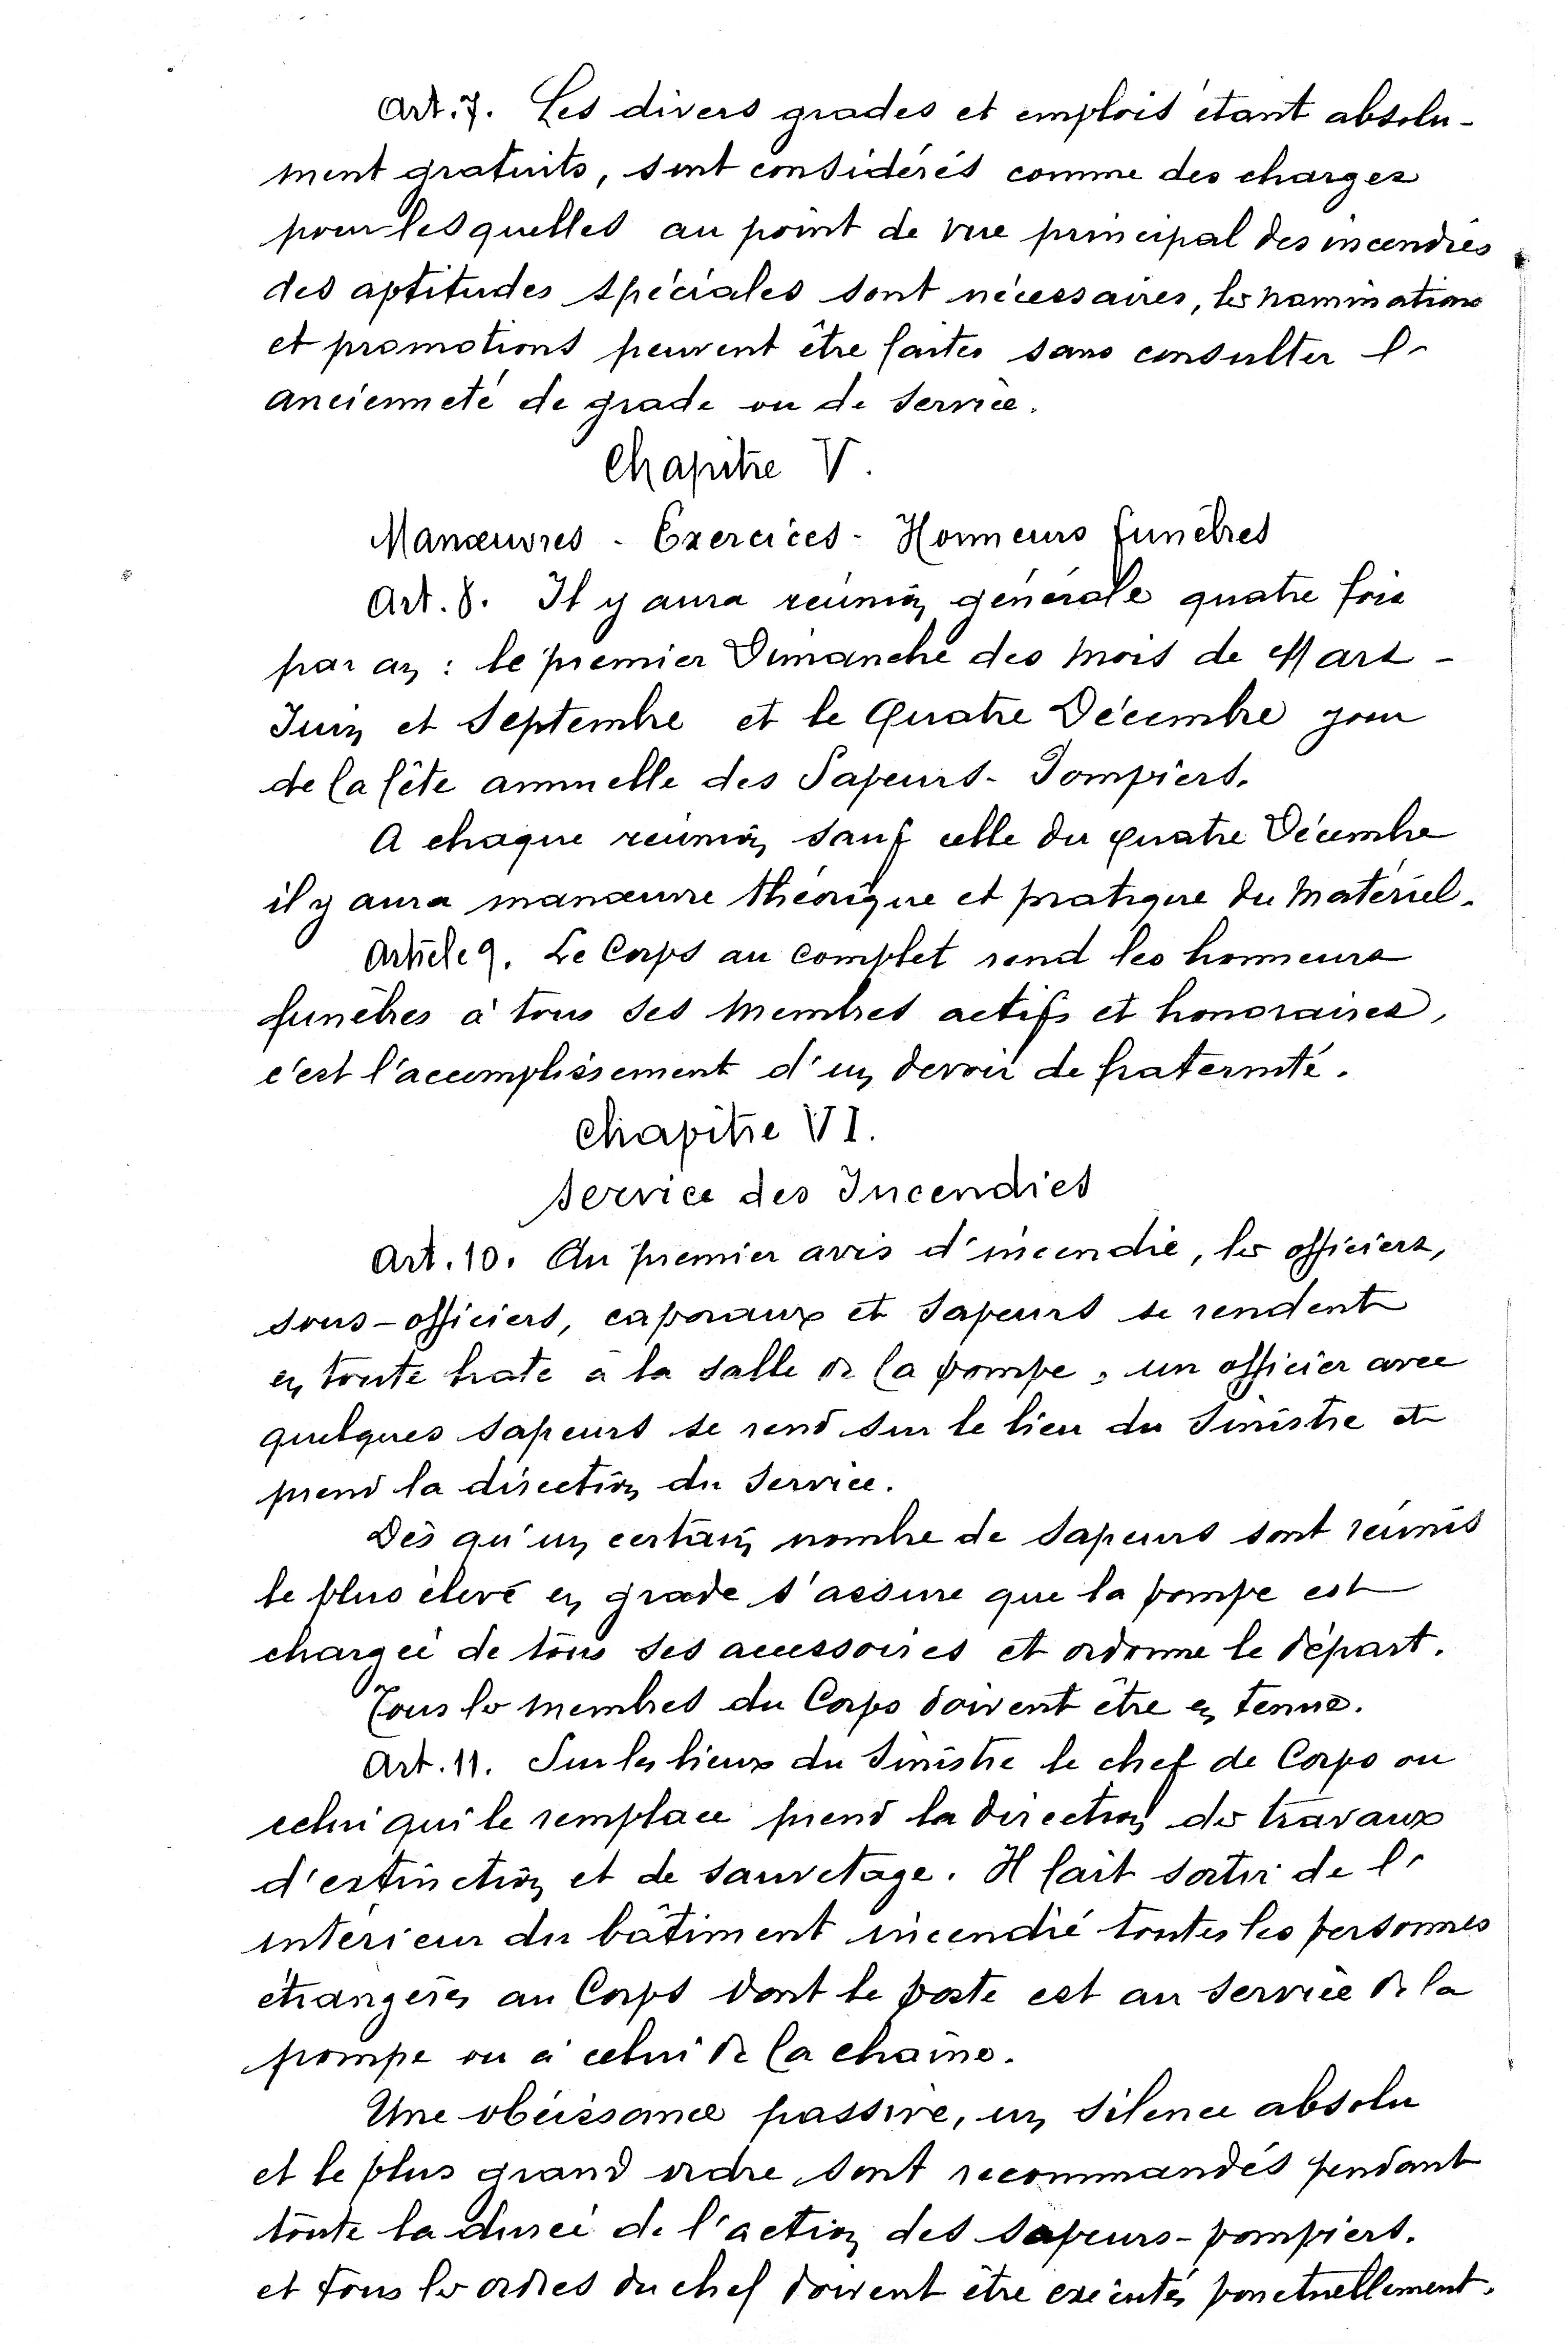 Art. 7. Les divers grades et emplois étant absolu-
ment gratuits, sont considérés comme des charges
pour lesquelles au point de vue principal des incendies
des aptitudes spéciales sont nécessaires, les nominations
et promotions peuvent être faites sans consulter l'
ancienneté de grade ou de service.
Chapitre V.
Manœuvres - Exercices - Honneurs funèbres
Art. 8. Il y aura réunion générale quatre fois
par an : le premier Dimanche des mois de Mars -
Juin et Septembre et le Quatre Décembre jour
de la fête annuelle des Sapeurs-Pompiers.
A chaque réunion, sauf celle du quatre Décembre
il y aura manœuvre théorique et pratique du matériel.
Article 9. Le Corps au complet rend les honneurs
funèbres à tous ses membres actifs et honoraires,
c'est l'accomplissement d'un devoir de fraternité.
Chapitre VI.
Service des Incendies
Art. 10. Au premier avis d'incendie, les officiers,
sous-officiers, caporaux et sapeurs se rendent
en toute hate à la salle de la pompe, un officier avec
quelques sapeurs se rend sur le lieu du sinistre et
prend la direction du service.
Dès qu'un certain nombre de sapeurs sont réunis
le plus élevé en grade s'assure que la pompe est
chargée de tous ses accessoires et ordonne le départ.
Tous les membres du Corps doivent être en tenue.
Art. 11. Sur les lieux du sinistre le chef de Corps ou
celui qui le remplace prend la direction des travaux
d'extinction et de sauvetage. Il fait sortir de l'
intérieur du bâtiment incendié toutes les personnes
étrangères au Corps dont le poste est au service de la
pompe ou à celui de la chaîne.
Une obéissance passive, un silence absolu
et le plus grand ordre sont recommandés pendant
toute la durée de l'action des sapeurs-pompiers.
et tous les ordres du chef doivent être exécutés ponctuellement.